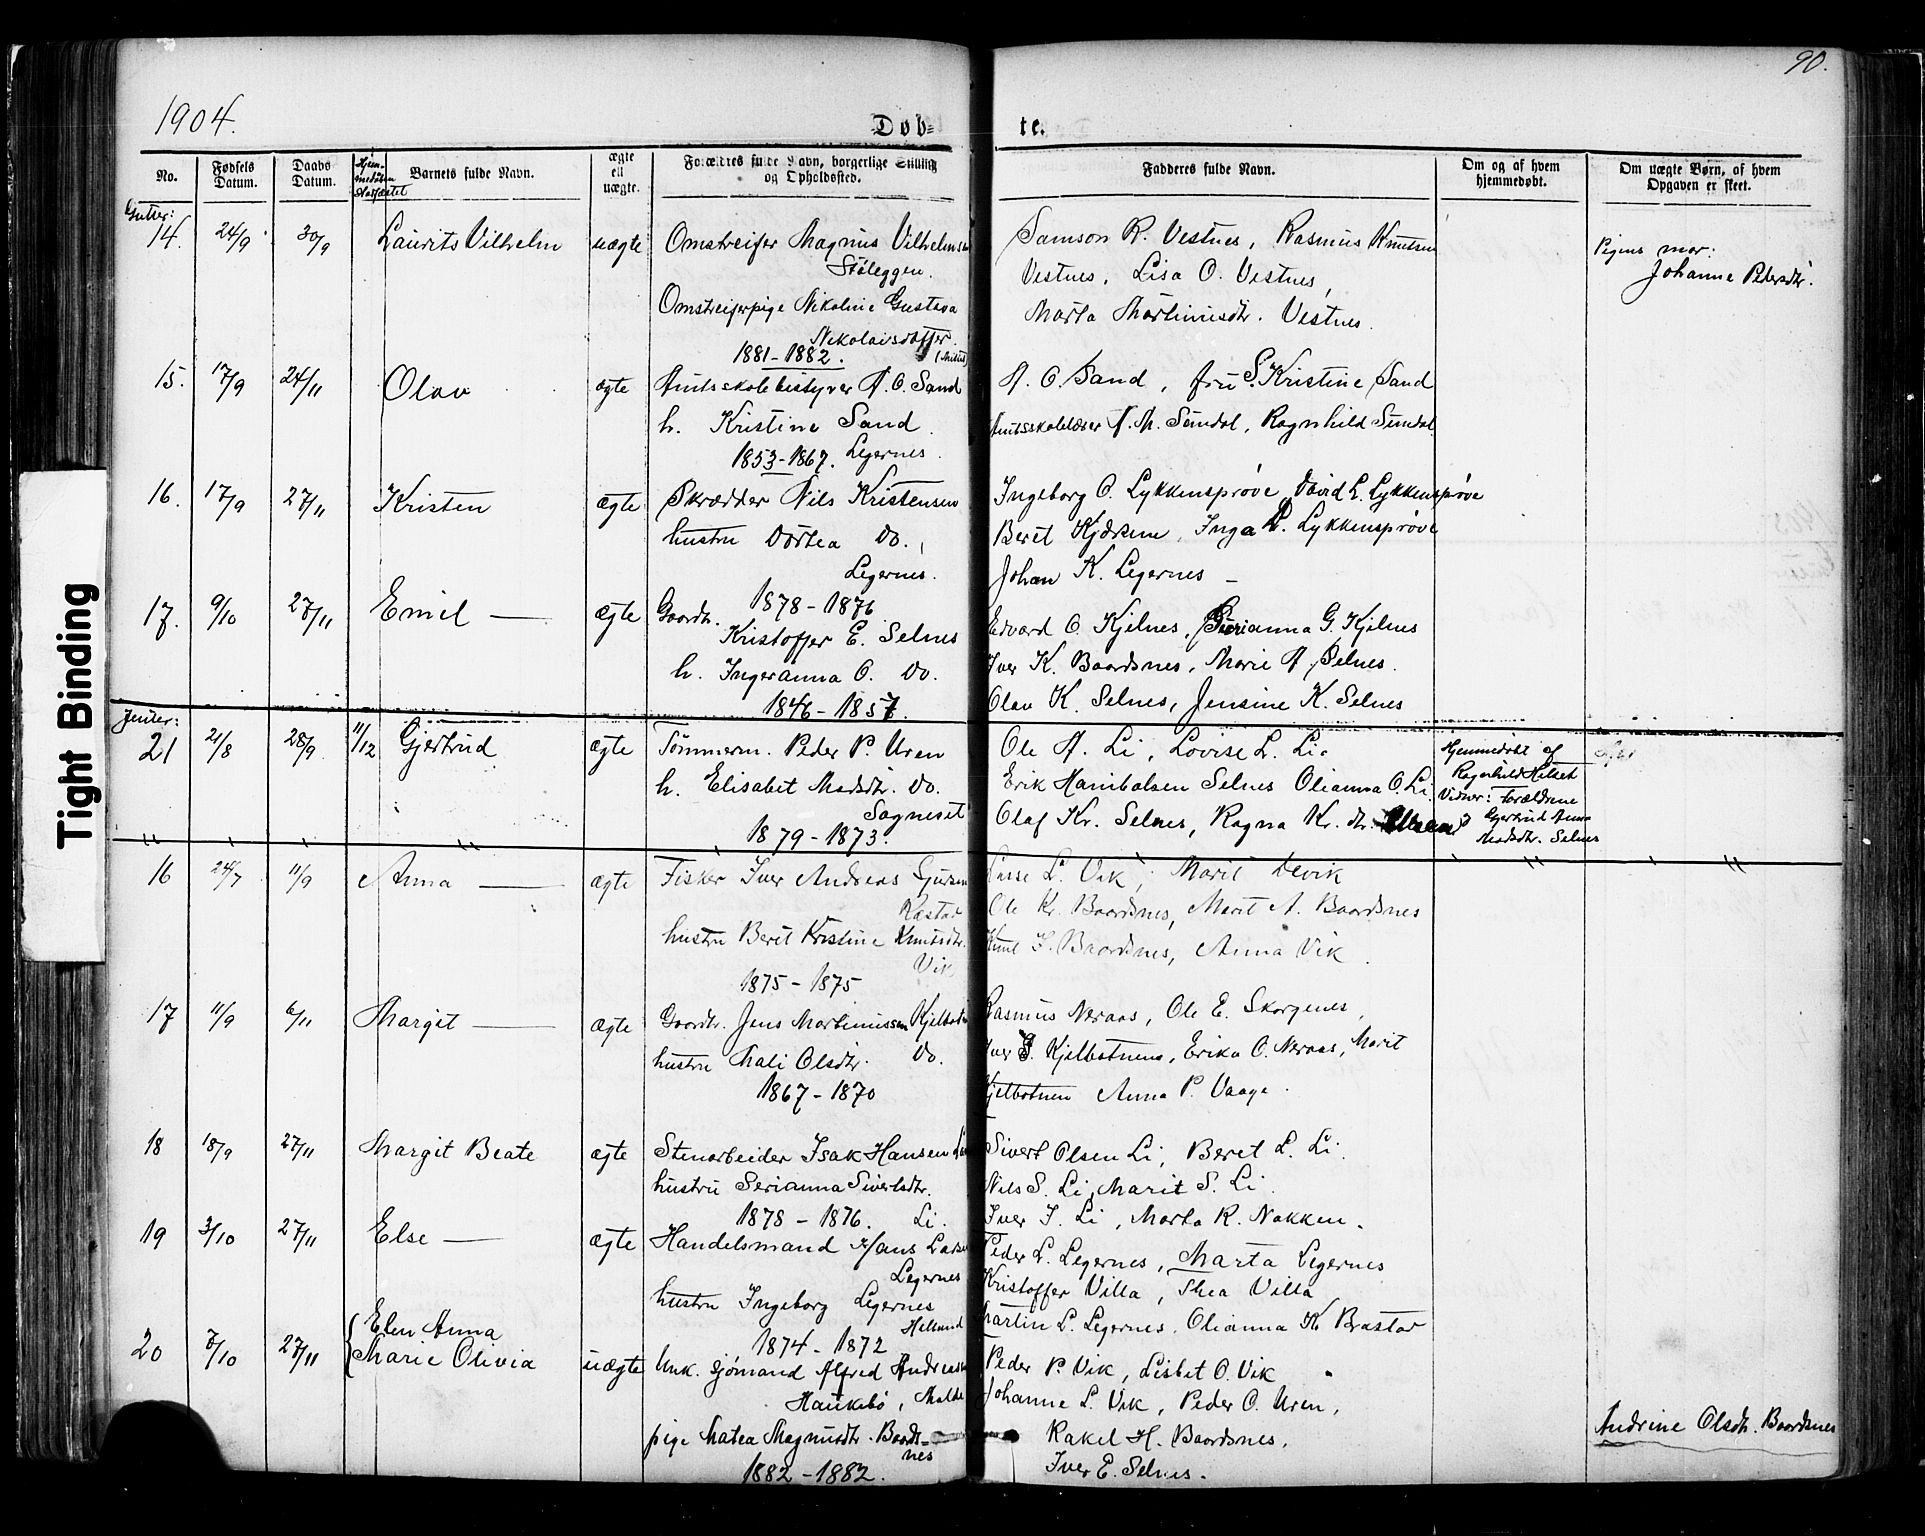 90.
1904.
Døb-
te.
No.
Fødsels Datum.
Daabs Datum.
Hjemmedøben Stadfæstet
Barnets fulde Navn.
ægte ell uægte.
Forældres fulde Navn, borgerlige Stilling og Opholdssted.
Fadderes fulde Navn.
Om og af hvem hjemmedøbt.
Om uægte Børn, af hvem Opgaven er skeet.
Gutter:
14. 24/9 30/9 Laurits Vilhelm uægte Omstreifer Magnus Vilhelmsen
Støleggen.
Omstreiferpige Nikoline Gustava
Nikolaisdatter.
1881-1882.
Samson R. Vestnes, Rasmus Knutsen
Vestnes, Lisa O. Vestnes,
Marta Martinusdtr. Vestnes.
Pigens mor:
Johanne Pedersdtr.
15. 17/9 24/11 Olav ægte Amtsskolebestyrer A. O. Sand
h. Kristine Sand
Legernes.
1853-1867.
A. O. Sand, fru S. Kristine Sand
Amtsskolelærer A. M. Sundal, Ragnhild Sundal
16. 17/9 27/11 Kristen ægte Skrædder Nils Kristensen
hustru Dortea Do.,
Legernes.
1878-1876
Ingeborg O. Lykkensprøve, David L. Lykkensprøve
Beret Kjærem, Inga L. Lykkensprøve
Johan K. Legernes -
17. 9/10 27/11 Emil ægte Gaardbr.
Kristoffer E. Selnes
h. Ingeranna O. Do.
1846-1857.
Edvard O. Kjelnes, Gurianna G. Kjelnes
Iver K. Baardsnes, Marie A. Selnes.
Olav K. Selnes, Jensine K. Selnes
Jenter:
21 21/8 28/9 11/12 Gjertrud ægte Tømmerm. Peder P. Uren
h. Elisabet Madsdtr. Do.
Sagneset
1879-1873.
Ole A. Li, Lovise L. Li.
Erik Hanibalsen Selnes Olianna O. Li.
Olaf Kr. Selnes, Ragna Kr. dtr.
Hjemmedøbt af
Ragnhild Helset
Vidner: Forældrene
Gjertrud Anna
Madsdtr. Selnes
16 24/7 11/9 Anna ægte Fisker Iver Andreas
hustru Beret Kristine Knutsdtr.
Vik
1875-1875
L. Vik, Marit Devik
Ole Kr. Baardsnes, Marit A. Baardsnes
Knut I. Baardsnes, Anna Vik.
17 11/9 6/11 Margit ægte Gaardbr. Jens Martinussen Kjelbotn
hustru Mali Olsdtr. Do.
1867-1870
Rasmus Neraas, Ole E. Skorgenes,
Iver J. Kjelbotnen, Erika O. Neraas, Marit
Kjelbotnen Anna P. Vaage.
18 18/9 27/11 Margit Beate ægte Stenarbeider Isak Hansen Li
hustru Serianna Sivertsdtr.
1878-1876. Li.
Sivert Olsen Li, Beret L. Li.
Nils S. Li, Marit S. Li.
Iver I. Li, Marta R. Nakken.
19 3/10 27/11 Else ægte Handelsmand Hans Larsen
Legernes
hustru Ingeborg Legernes
1874-1872
Peder L. Legernes, Marta Legernes
Kristoffer Villa, Thea Villa
Martin L. Legernes, Olianna K. Brastad
20 7/10 27/11 Elen Anna
Marie Olivia uægte Unk. sjømand Alfred Andreas
Haukebø, Molde
pige Matea Magnusdtr. Baards-
nes
1882-1882.
Peder P. Vik, Lisbet O. Vik
Johanne L. Vik, Peder O. Uren,
Rakel H. Baardsnes,
Iver E. Selnes.
Andrine Olsdtr. Baardsnes
Tight Binding